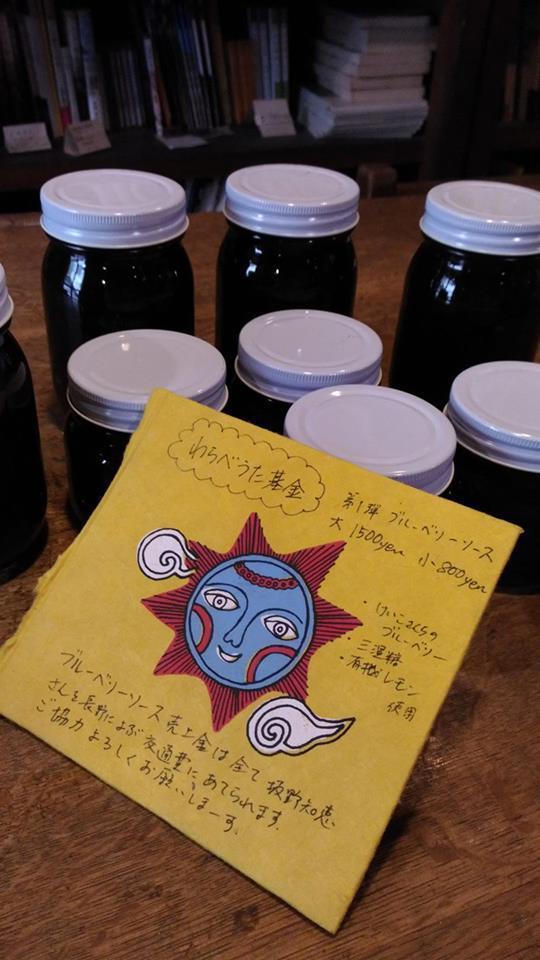 わらべうた基金
第1弾 ブルーベリーソース
大 1500yen 小 800yen
・けいこさくらの
ブルーベリー
三温糖
・有機レモン
使用
ブルーベリーソース 売上金は全て 坂野知恵
さんを長野によぶ交通費にあてられます。
ご協力よろしくお願いしまーす。